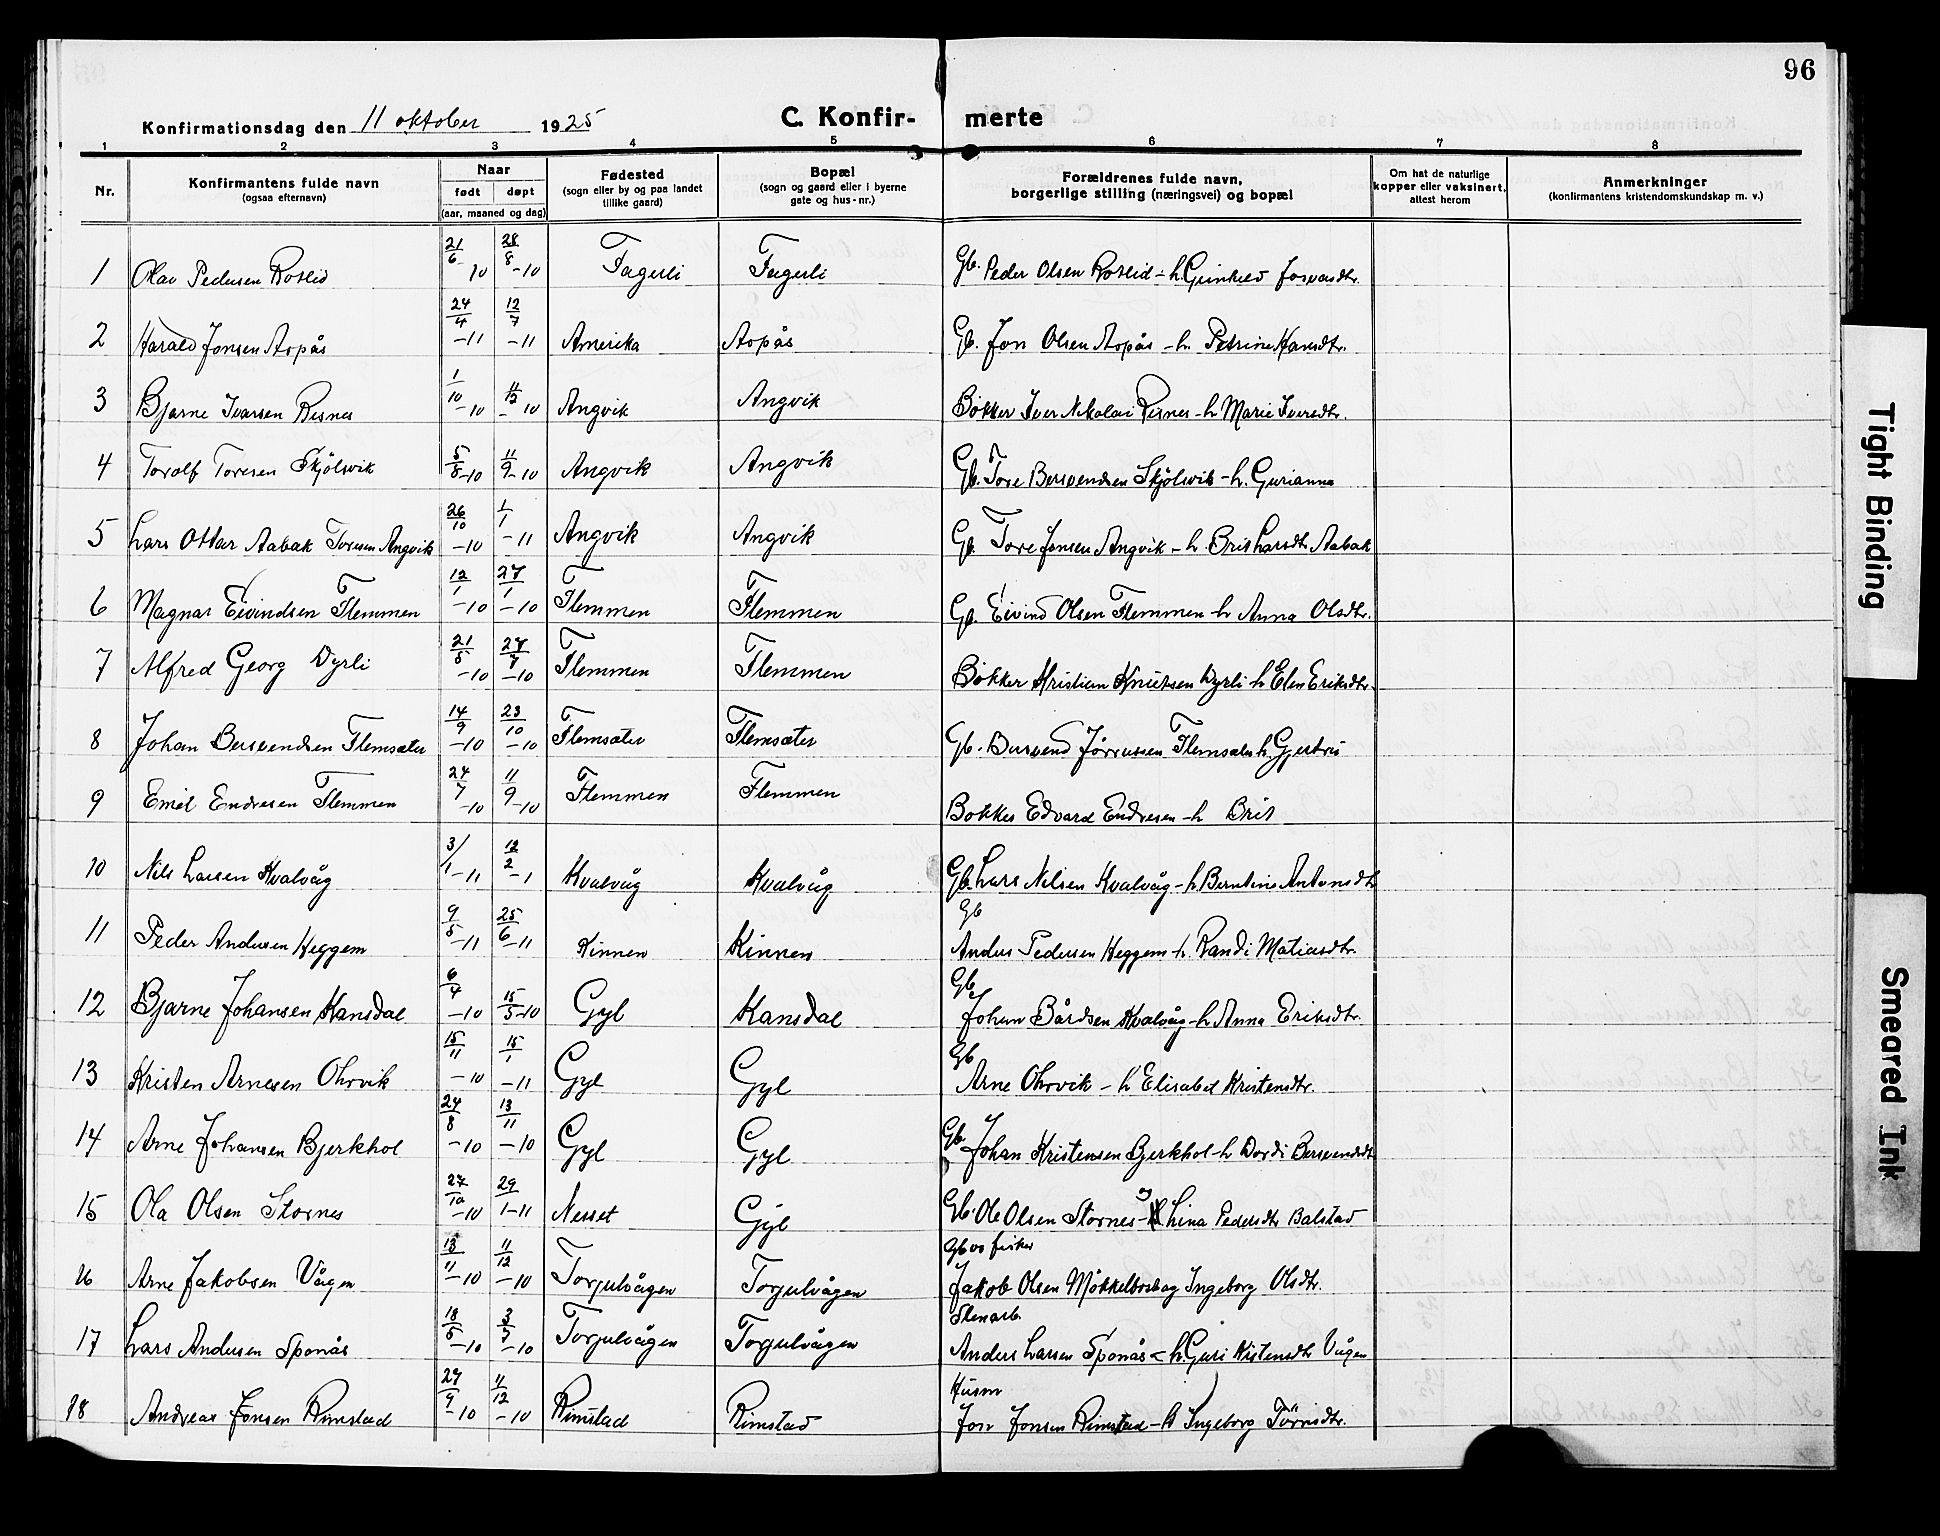 96
Konfirmationsdag den 11 oktober 1925 C. Konfir- merte
1 2 3 4 5 6 7 8
Nr. Konfirmantens fulde navn (ogsaa efternavn) Naar født døpt (aar, maaned og dag) Fødested (sogn eller by og paa landet tillike gaard) Bopæl (sogn og gaard eller i byerne gate og hus-nr.) Forældrenes fulde navn, borgerlige stilling (næringsvei) og bopæl Om hat de naturlige kopper eller vaksinert, attest herom Anmerkninger (konfirmantens kristendomskundskap m. v.)
1 Olav Pedersen Roslid 21/6-10 28/8-10 Fagerli Fagerli Gb. Peder Olsen Roslid - h.
2 Harald Jonsen Aspås 24/4-11 12/7-11 Amerika Aspås Gb. Jon Olsen Aspås - h. Petrine Hansdtr.
3 Bjarne Ivarsen Resnes 1/10-10 11/12-10 Angvik Angvik Bøkker Iver Nikolai Resnes - h Marie Iversdtr.
4 Torolf Toresen Skjölsvik 5/8-10 11/9-10 Angvik Angvik Gb. Tore Bersvendsen Skjölsvik - h. Gurianna
5 Lars Ottar Aabak Toresen Angvik 26/10-10 1/1-11 Angvik Angvik Gb. Tore Jonsen Angvik - h. Brit Larsdtr Aabak
6 Magnar Eivindsen Flemmen 12/1-10 27/1-10 Flemmen Flemmen Gb. Eivind Olsen Flemmen - h Anna Olsdtr.
7 Alfred Georg Dyrli 21/5-10 27/7-10 Flemmen Flemmen Bøkker Kristian Knutsen Dyrli - h Elen Eriksdtr.
8 Johan Bersvendsen Flemsæter 14/9-10 23/10-10 Flemsæter Flemsæter Gb. Bersvend Flemsæter h.
9 Emil Endresen Flemmen 24/7-10 11/9-10 Flemmen Flemmen Bøkker Edvard Endresen - h Brit
10 Nils Larsen Kvalvåg 3/1-11 12/2-1 Kvalvåg Kvalvåg Gb. Lars Nilsen Kvalvåg - h. Berntine Antonsdtr
11 Peder Andersen Heggem 9/5-11 25/6-11 Kinnen Kinnen Gb Anders Pedersen Heggem - h. Randi Matiasdtr.
12 Bjarne Johansen Kansdal 6/4-10 15/5-10 Gyl Kansdal Gb. Johan Bårdsen Kvalvåg - h Anna Eriksdtr.
13 Kristen Arnesen Ohrvik 15/11-10 15/1-11 Gyl Gyl Gb Arne Ohrvik - h Elisabet Kristensdtr.
14 Arne Johansen Bjerkhol 24/8-10 13/11-10 Gyl Gyl Gb. Johan Kristensen Bjerkhol - h Dordi Bersvendsdtr
15 Ola Olsen Stornes 27/10-10 29/1-11 Nesset Gyl Gb. Ole Olsen Stornes - og Lina Pedersdtr Balstad
16 Arne Jakobsen Vågen 13/11-10 11/12-10 Torjulvågen Torjulvågen Gb og fisker Jakob Olsen Ingeborg Olsdtr.
17 Lars Andersen Sponås 18/5-10 3/7-10 Torjulvågen Torjulvågen Stenarb. Anders Larsen Sponås - h. Guri Kristensdtr Vågen
18 Andreas Jonsen Rimstad 27/9-10 11/12-10 Rimstad Rimstad Husm Jon Jonsen Rimstad - h Ingeborg
Tight Binding
Smeared Ink